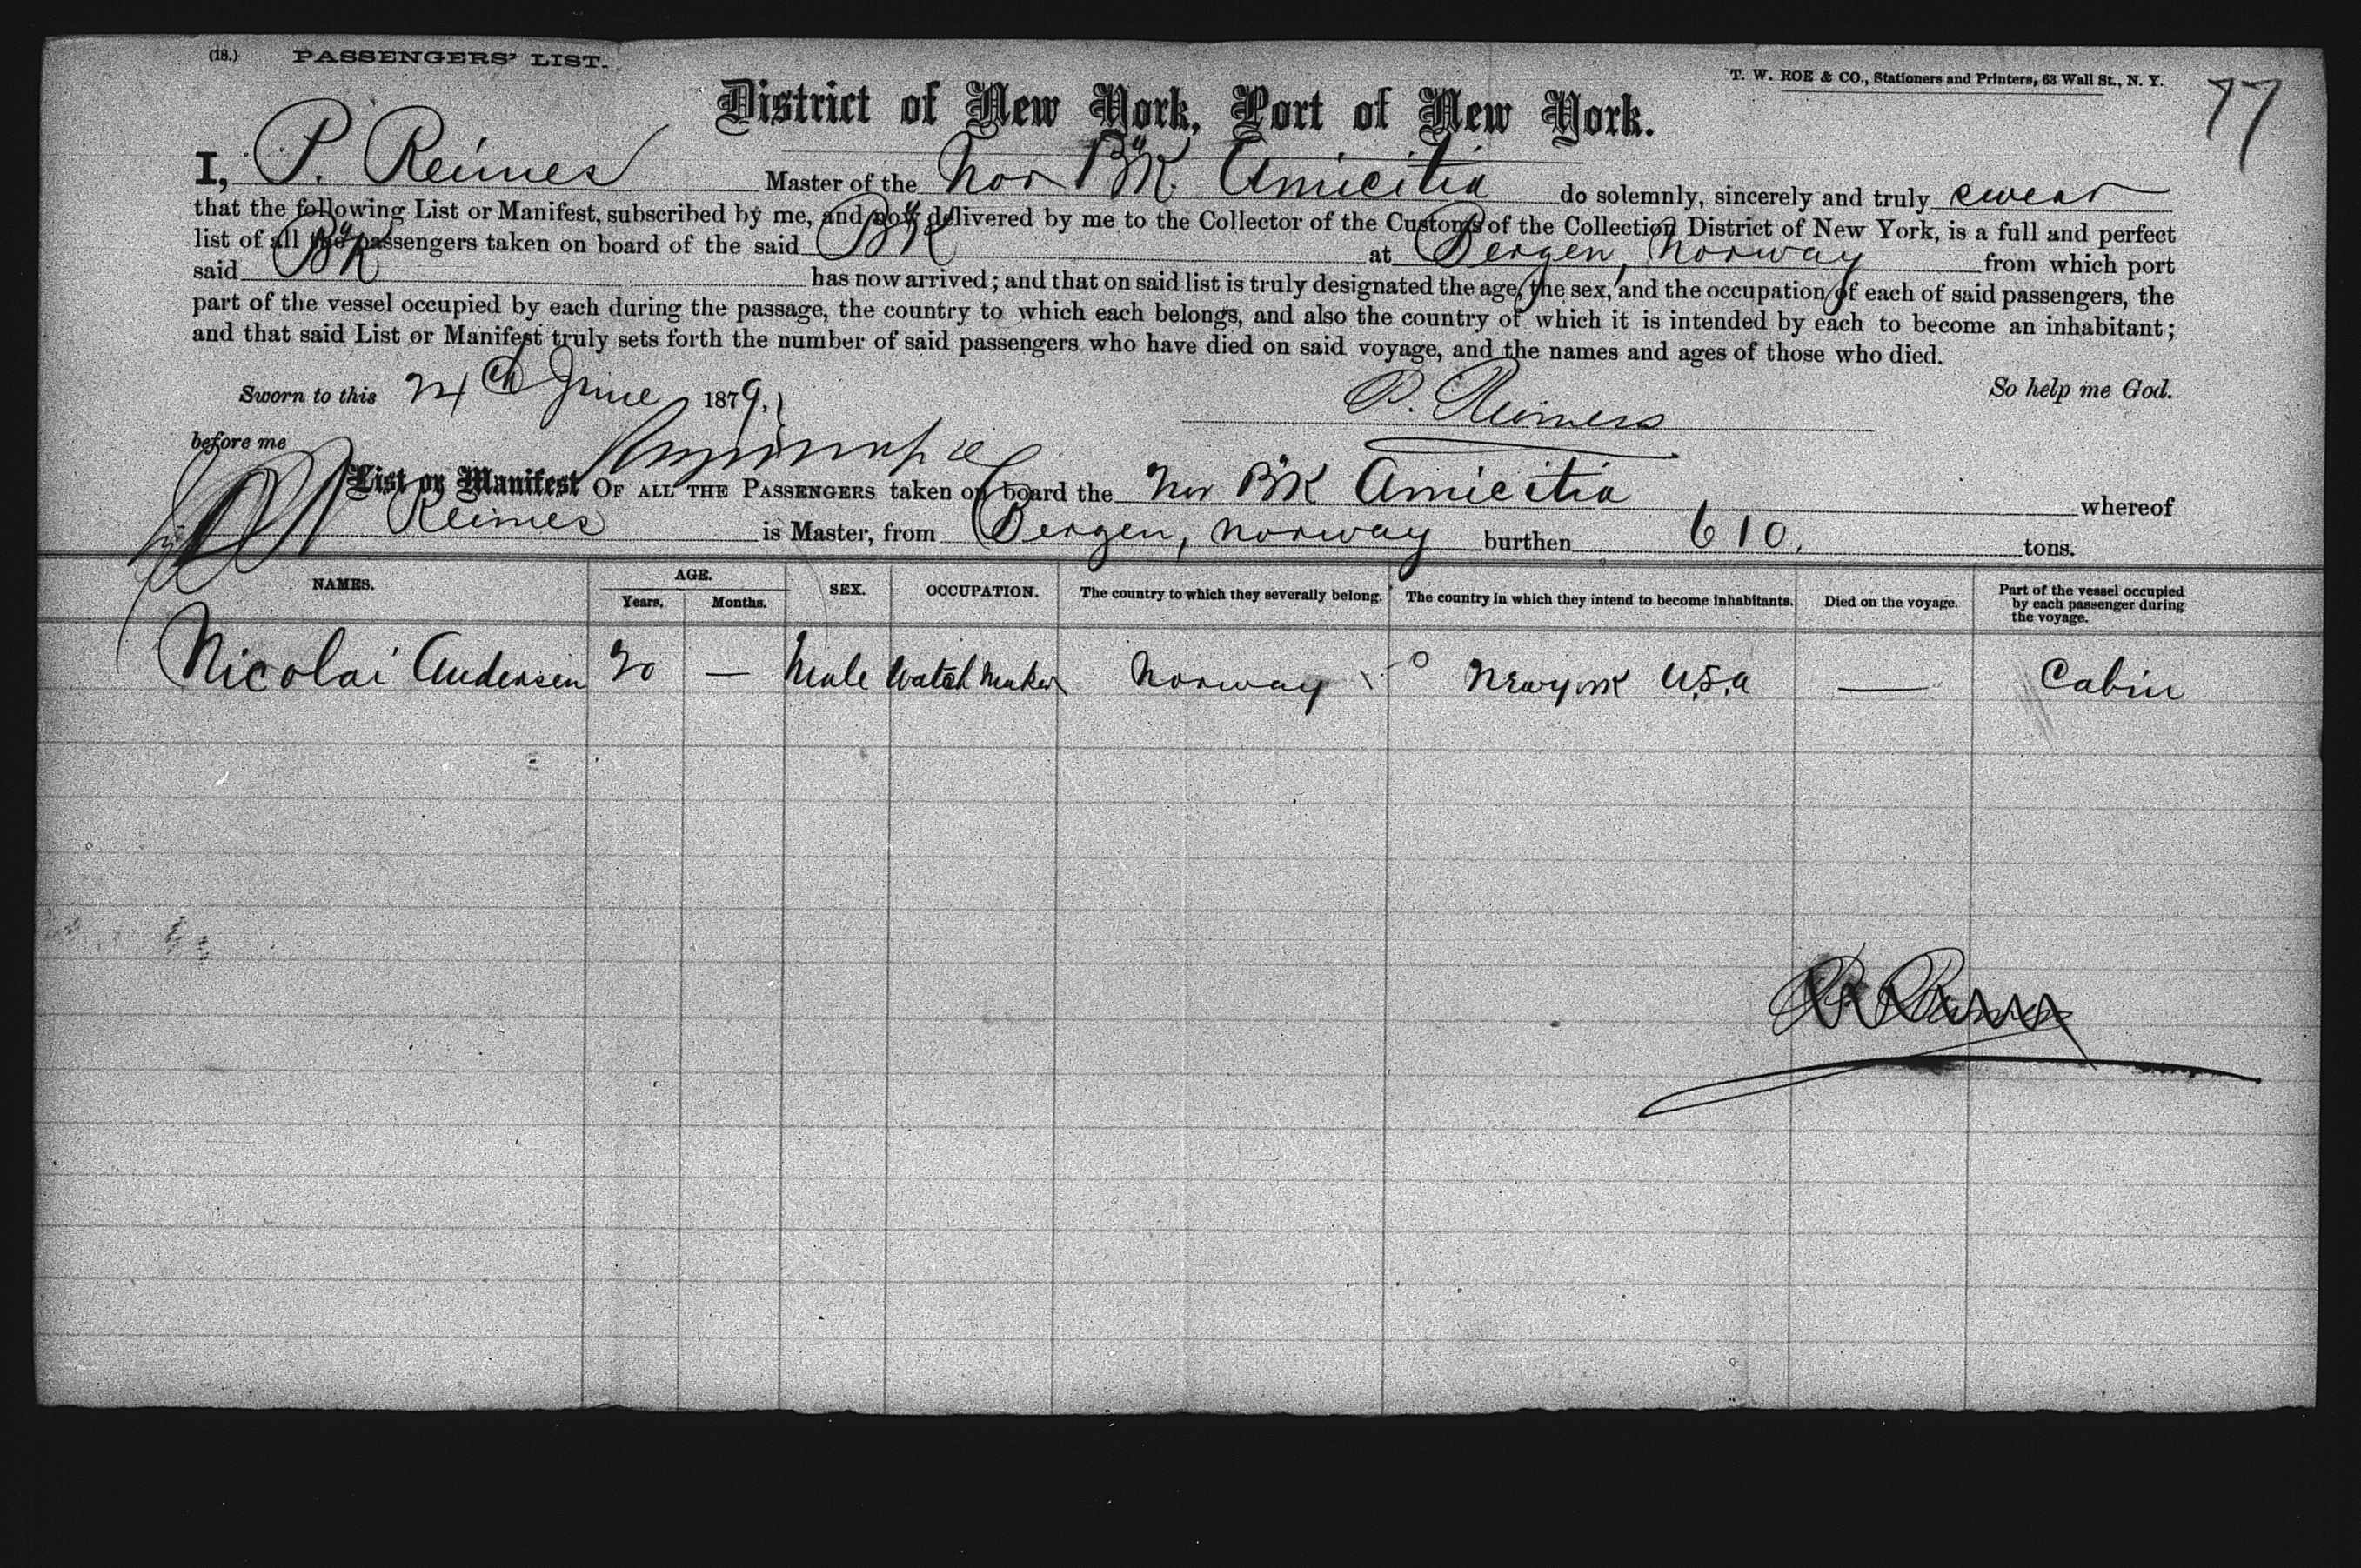 (18.) PASSENGERS' LIST.
T. W. ROE & CO., Stationers and Printers, 63 Wall St., N. Y.
77
District of New York, Port of New York.
I, P. Reimes Master of the Nor Bk. Amicitia do solemnly, sincerely and truly swear
that the following List or Manifest, subscribed by me, and now delivered by me to the Collector of the Customs of the Collection District of New York, is a full and perfect
list of all the passengers taken on board of the said Bk at Bergen, Norway from which port
said Bk has now arrived; and that on said list is truly designated the age, the sex, and the occupation of each of said passengers, the
part of the vessel occupied by each during the passage, the country to which each belongs, and also the country of which it is intended by each to become an inhabitant;
and that said List or Manifest truly sets forth the number of said passengers who have died on said voyage, and the names and ages of those who died.
Sworn to this 24th June 1879. So help me God.
P. Reimers
before me
List or Manifest OF ALL THE PASSENGERS taken on board the Nor Bk Amicitia whereof
Reimes is Master, from Bergen, Norway burthen 610. tons.
NAMES. AGE. Years. Months. SEX. OCCUPATION. The country to which they severally belong. The country in which they intend to become inhabitants. Died on the voyage. Part of the vessel occupied by each passenger during the voyage.
Nicolai Andersen 20 — Male Watch Maker Norway New york U.S.a — Cabin